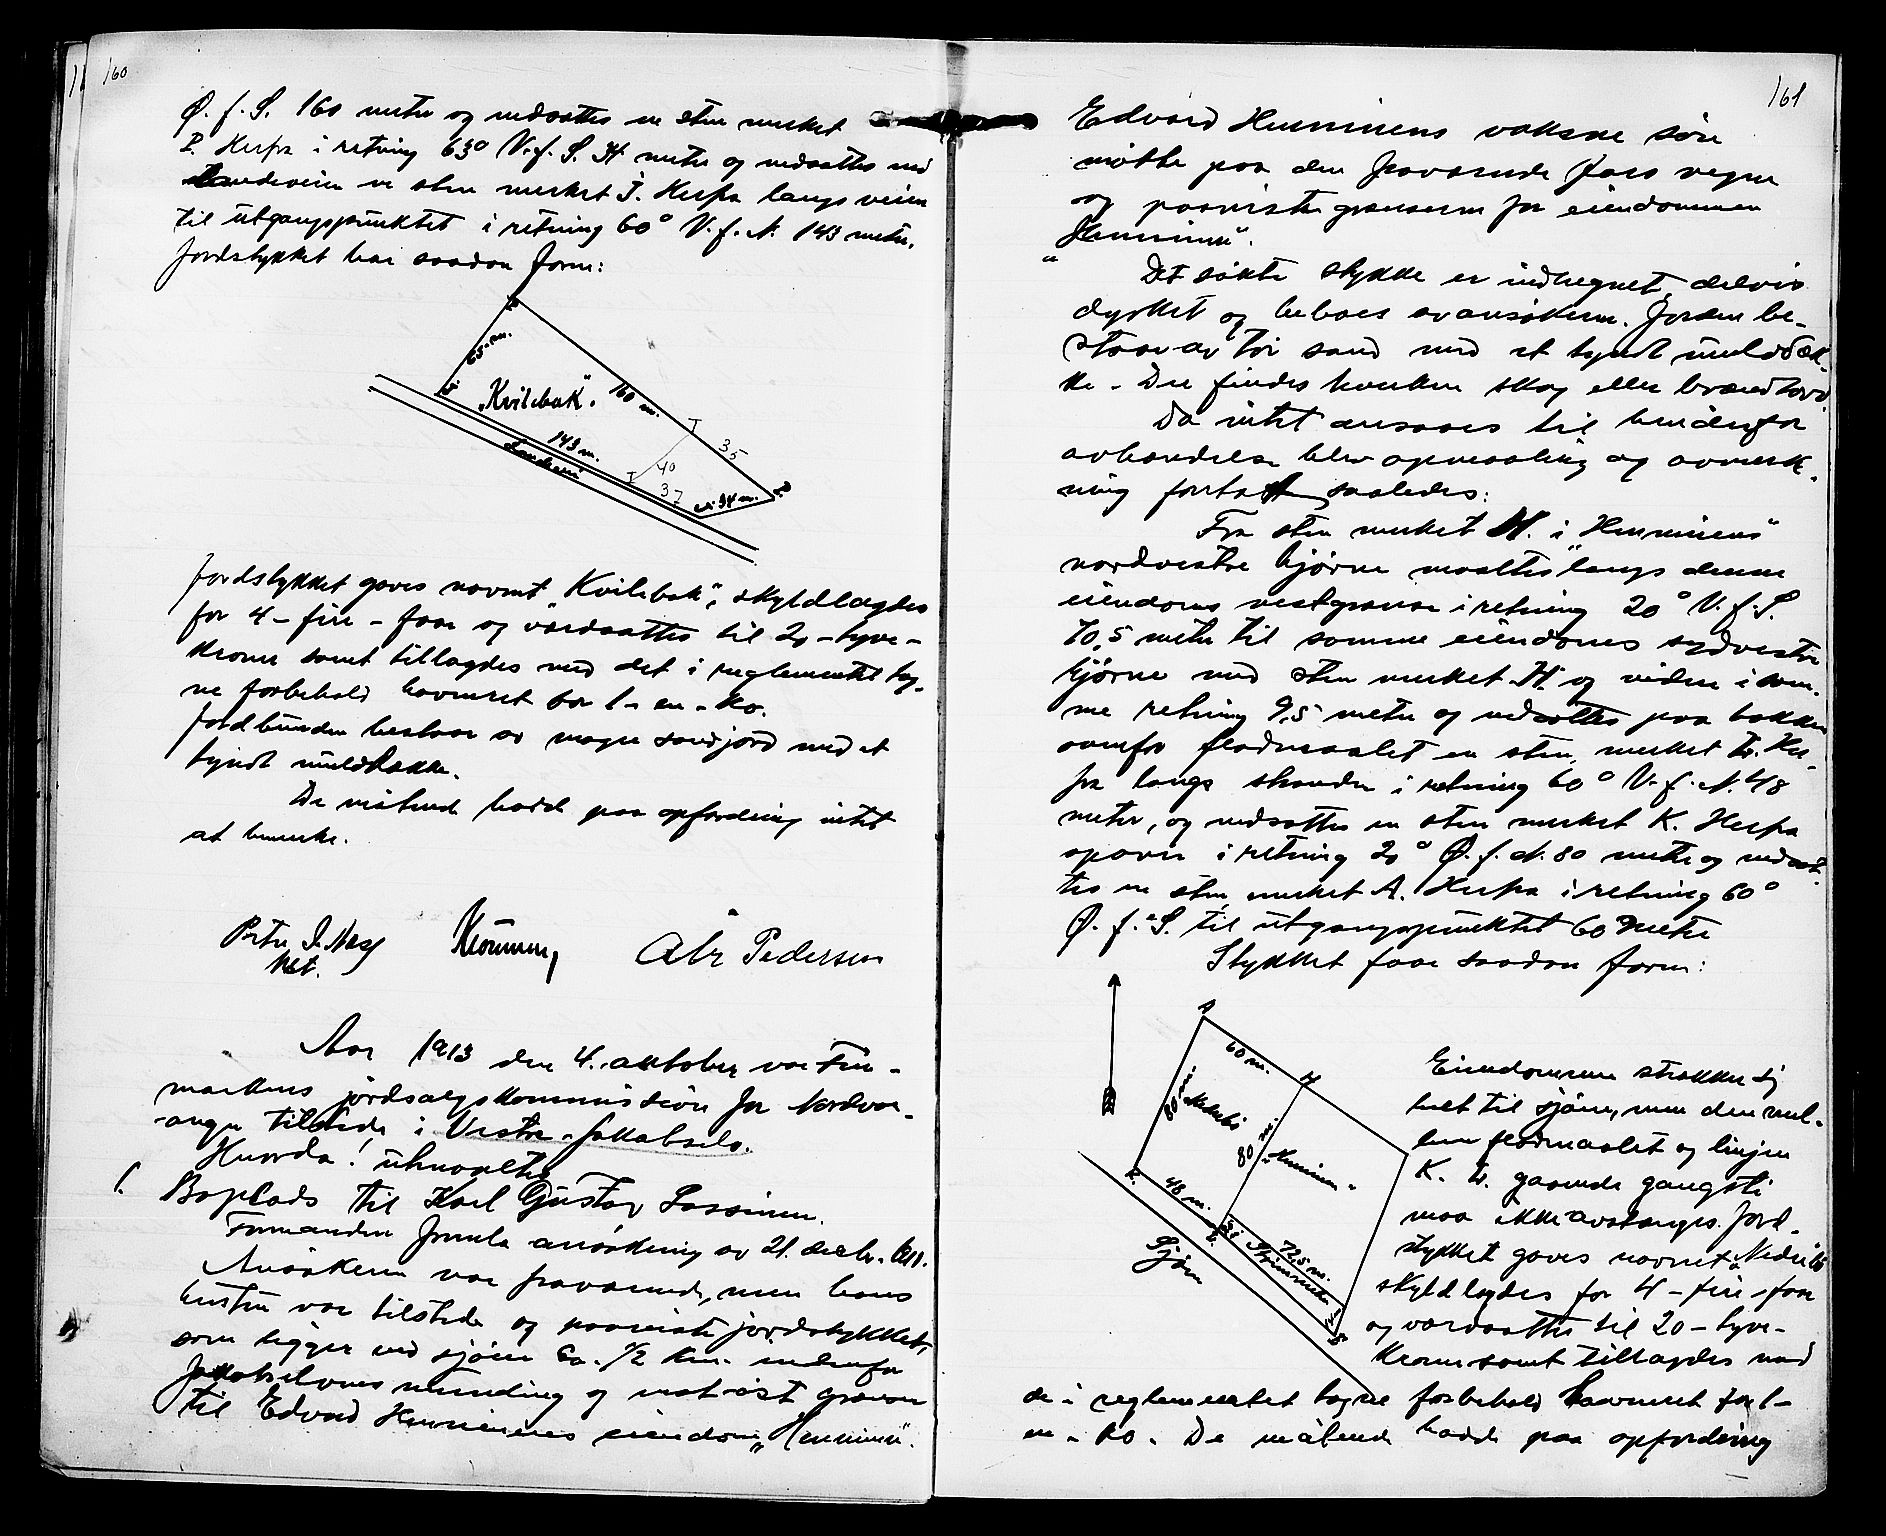 160
Ø. f. S. 160 meter og nedsattes en sten merket
P. Herfra i retning 63° V. f. S. 34 meter og nedsattes ved
landeveien en sten merket J. Herfra langs veien
til utgangspunktet i retning 60° V. f. N. 143 meter.
Jordstykket har saadan form:
65 m.
"Kvilebak".
160 m.
35
143 m.
40
37
Landevei
34 m.
P.
Jordstykket gaves navnet "Kvilebak", skyldlagdes
for 4 - fire - øre og værdsattes til 20 - tyve -
kroner samt tillagdes med det i reglementet tag-
ne forbehold havneret for 1 - en - ko.
Jordbunden bestaar av mager sandjord med et
tyndt muldlække.
De møtende hadde paa opfordring intet
at bemerke.
Peter I. Næss
kst.
Kroumen,
Abr Pedersen
Aar 1913 den 4. oktober var Fin-
markens jordsalgskommission for Nordvar-
anger tilstede i Vestre-Jakobselv.
Hvorda! utmaaltes
1. Boplads til Karl Gustav Lassinen.
Formanden fremla ansøkning av 21. decbr. 1911.
Ansøkeren var fraværende, men hans
hustru var tilstede og paaviste jordstykket,
som ligger ved sjøen ca. 1/2 km. indenfor
Jakobselvens munding og mot øst grænser
til Edvard Henninens eiendom "Henninen".
161
Edvard Henninens voksne søn
møtte paa den fraværende fars vegne
og paaviste grænserne for eiendommen
"Henninen".
Det søkte stykke er indhegnet, delvis
dyrket og beboes av ansøkeren. Jorden be-
staar av tør sand med et tyndt mulddæk-
ke. Der findes hverken skog eller brændtorv.
Da intet ansaaes til hinder for
avhændelse blev opmaaling og avmerk-
ning foretat saaledes:
Fra sten merket H. i "Henninens"
nordvestre hjørne maaltes langs denne
eiendoms vestgrænse i retning 20° V. f. S.
70,5 meter til samme eiendoms sydvestre
hjørne med sten merket H. og videre i sam-
me retning 9,5 meter og nedsattes paa bakken
ovenfor flodmaalet en sten merket L. Her-
fra langs stranden i retning 60° V. f. N. 48
meter, og nedsattes en sten merket K. Herfra
opover i retning 20° Ø. f. N. 80 meter og nedsat-
tes en sten merket A. Herfra i retning 60°
Ø. f. S. til utgangspunktet 60 meter
Stykket faar saadan form:
A
60 m.
H
80 m.
80 m.
"Henninen"
K.
48 m.
L.
72,5 m.
Sjøen
Eiendommen strækker sig
helt til sjøen, men den mel-
lem flodmaalet og linjen
K. L. gaaende gangsti
maa ikke avstænges. Jord-
stykket gaves navnet "Nedrebo"
skyldlagdes for 4 - fire - øre
og værdsattes til 20 - tyve -
kroner samt tillagdes med
de i reglementet tagne forbehold havneret for 1 -
en - ko. De møtende hadde paa opfordring